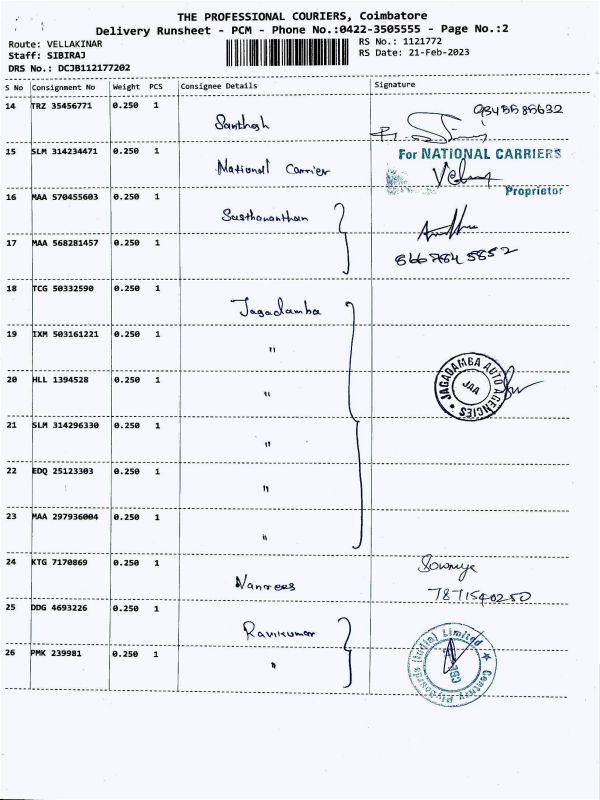 THE PROFESSIONAL COURIERS, Coimbatore
Delivery Runsheet - PCM - Phone No.:0422-3505555 - Page No.:2
Route: VELLAKINAR
Staff: SIBIRAJ
DRS No.: DCJB112177202
RS No.: 1121772
RS Date: 21-Feb-2023
S No Consignment No Weight PCS Consignee Details Signature
14 TRZ 35456771 0.250 1 Santhosh 9845585632
15 SLM 314234471 0.250 1 National Carrier For NATIONAL CARRIERS
Proprietor
16 MAA 570455603 0.250 1
17 MAA 568281457 0.250 1 8667845852
18 TCG 50332590 0.250 1 Jagadamba
19 IXM 503161221 0.250 1 "
20 HLL 1394528 0.250 1 " JAGADAMBA AUTO AGENCIES JAA
21 SLM 314296330 0.250 1 "
22 EDQ 25123303 0.250 1 "
23 MAA 297936004 0.250 1 "
24 KTG 7170869 0.250 1 Sowmya
7871540250
25 DDG 4693226 0.250 1 Ravikumar
26 PMK 239981 0.250 1 " Century Plyboards (India) Limited